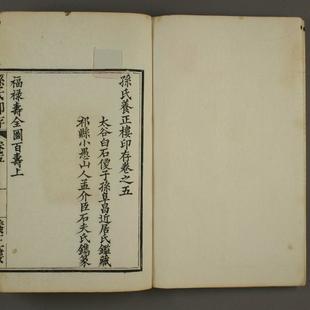 孫氏養正樓印存卷之五
太谷白石傻子孫阜昌近居氏鑑藏
祁縣小愚山人孟介臣石夫氏鐫篆
福祿壽全圖百壽上